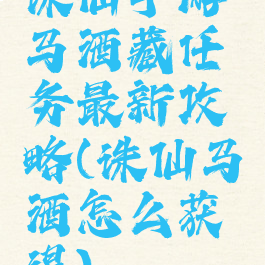 诛仙手游
马酒藏任
务最新攻
略(诛仙马
酒怎么获
得)